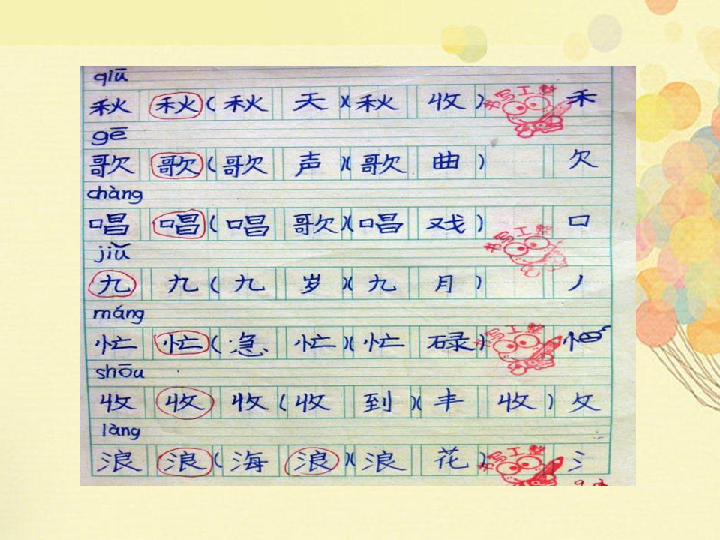 qiū
秋 秋(秋天)(秋收) 书写工整 禾
gē
歌 歌(歌声)(歌曲) 欠
chàng
唱 唱(唱歌)(唱戏) 书写工整 口
jiǔ
九 九(九岁)(九月) 丿
máng
忙 忙(急忙)(忙碌) 书写工整 忄
shōu
收 收 收(收到)(丰收) 攵
làng
浪 浪(海浪)(浪花) 书写工整 氵